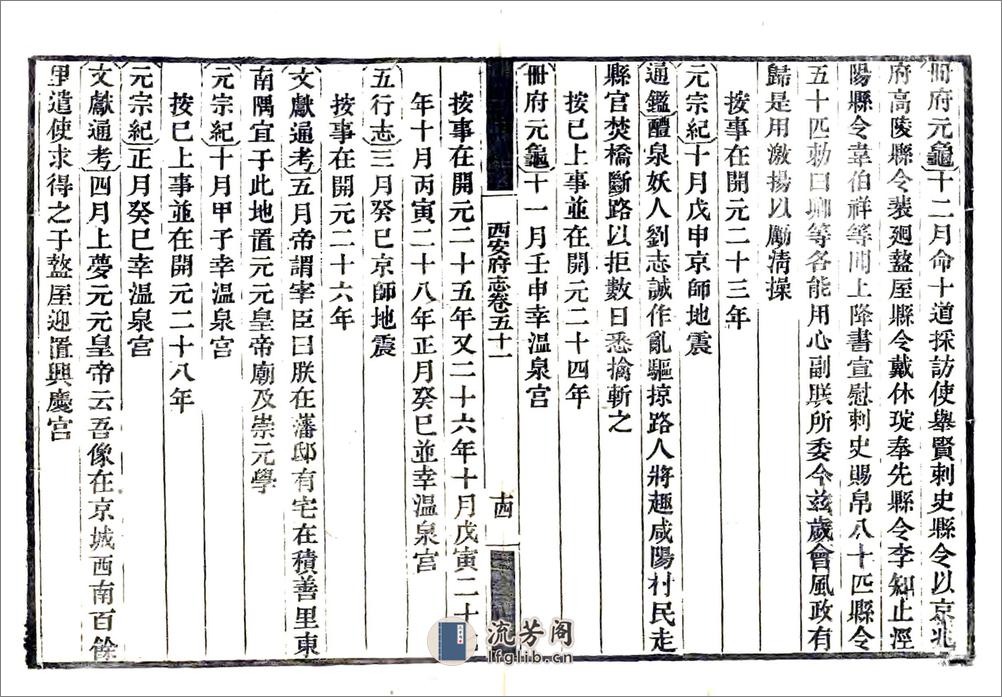 冊府元龜十二月命十道採訪使舉賢刺史縣令以京兆
府高陵縣令裴迥盩厔縣令戴休琁奉先縣令李知止涇
陽縣令韋伯祥等聞上降書宣慰刺史賜帛八十匹縣令
五十匹勅曰卿等各能用心副朕所委今兹歲會風政有
歸是用激揚以勵清操
按事在開元二十三年
元宗紀十月戊申京師地震
通鑑醴泉妖人劉志誠作亂驅掠路人將趣咸陽村民走
縣官焚橋斷路以拒數日悉擒斬之
按已上事並在開元二十四年
冊府元龜十一月壬申幸溫泉宮
西安府志卷五十一
十四
按事在開元二十五年又二十六年十月戊寅二十七
年十月丙寅二十八年正月癸巳並幸溫泉宮
五行志三月癸巳京師地震
按事在開元二十六年
文獻通考五月帝謂宰臣曰朕在藩邸有宅在積善里東
南隅宜于此地置元元皇帝廟及崇元學
元宗紀十月甲子幸溫泉宮
按已上事並在開元二十八年
元宗紀正月癸巳幸溫泉宮
文獻通考四月上夢元元皇帝云吾像在京城西南百餘
里遣使求得之于盩厔迎置興慶宮
流芳阁
lfglib.cn